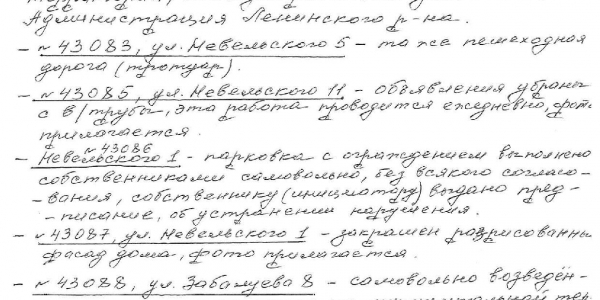 Администрация Ленинского р-на.
- № 43083, ул. Невельского 5 - та же пешеходная
дорога (тротуар).
- № 43085, ул. Невельского 11 - объявления убраны
с в/трубы, эта работа проводится ежедневно, фото
прилагается.
№ 43086
- Невельского 1 - парковка с ограждением выполнена
собственниками самовольно, без всякого согласо-
-вания, собственнику (инициатору) выдано пред-
-писание, об устранении нарушения.
- № 43087, ул. Невельского 1 - закрашен разрисованны
фасад дома, фото прилагается.
- № 43088, ул. Забалуева 8 - самовольно возведён-